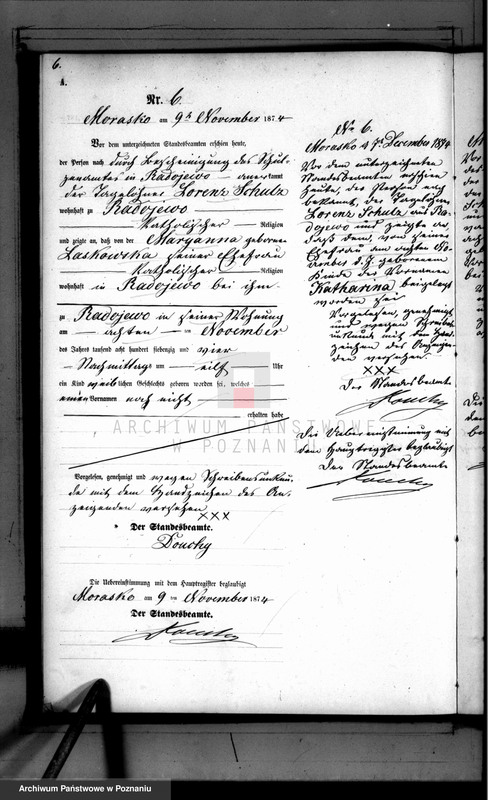 6.
A.
Nr. 6.
Morasko am 9ten November 1874
Vor dem unterzeichneten Standesbeamten erschien heute,
der Person nach durch Bescheinigung des Schul-
zenamtes in Radojewo anerkannt
der Tagelöhner Lorenz Schulz
wohnhaft zu Radojewo
katholischer Religion
und zeigte an, daß von der Maryanna geborene
Laskowska seiner Ehefrau
katholischer Religion
wohnhaft in Radojewo bei ihm
zu Radojewo in seiner Wohnung
am achten ten November
des Jahres tausend acht hundert siebenzig und vier
Nachmittags um eilf Uhr
ein Kind weiblichen Geschlechts geboren worden sei, welches
einen Vornamen noch nicht
erhalten habe
Vorgelesen, genehmigt und wegen Schreibensunkun-
de mit dem Handzeichen des An-
zeigenden versehen
XXX
Der Standesbeamte.
Die Uebereinstimmung mit dem Hauptregister beglaubigt
Morasko am 9 ten November 1874
Der Standesbeamte.
No 6.
Morasko d 7ten December 1874
Vor dem unterzeichneten
Standesbeamten erschien
heute, der Person nach
bekannt, der Tagelöhner
Lorenz Schulz aus Ra-
dojewo und zeigte an
daß dem, von seiner
Ehefrau am achten No-
vember d. J. geborenem
Kinde der Vorname
Katharina beigelegt
worden sei
Vorgelesen, genehmigt
und wegen Schreibens-
unkunde mit dem Hand-
zeichen des Anzeigen-
den versehen.
XXX
Der Standesbeamte
Die Uebereinstimmung mit
dem Hauptregister beglaubigt
Der Standesbeamte
ARCHIWUM PAŃSTWOWE
W POZNANIU
Archiwum Państwowe w Poznaniu